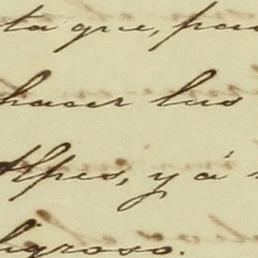 ta que, para
hacer las
Alpes, y á
ligroso.